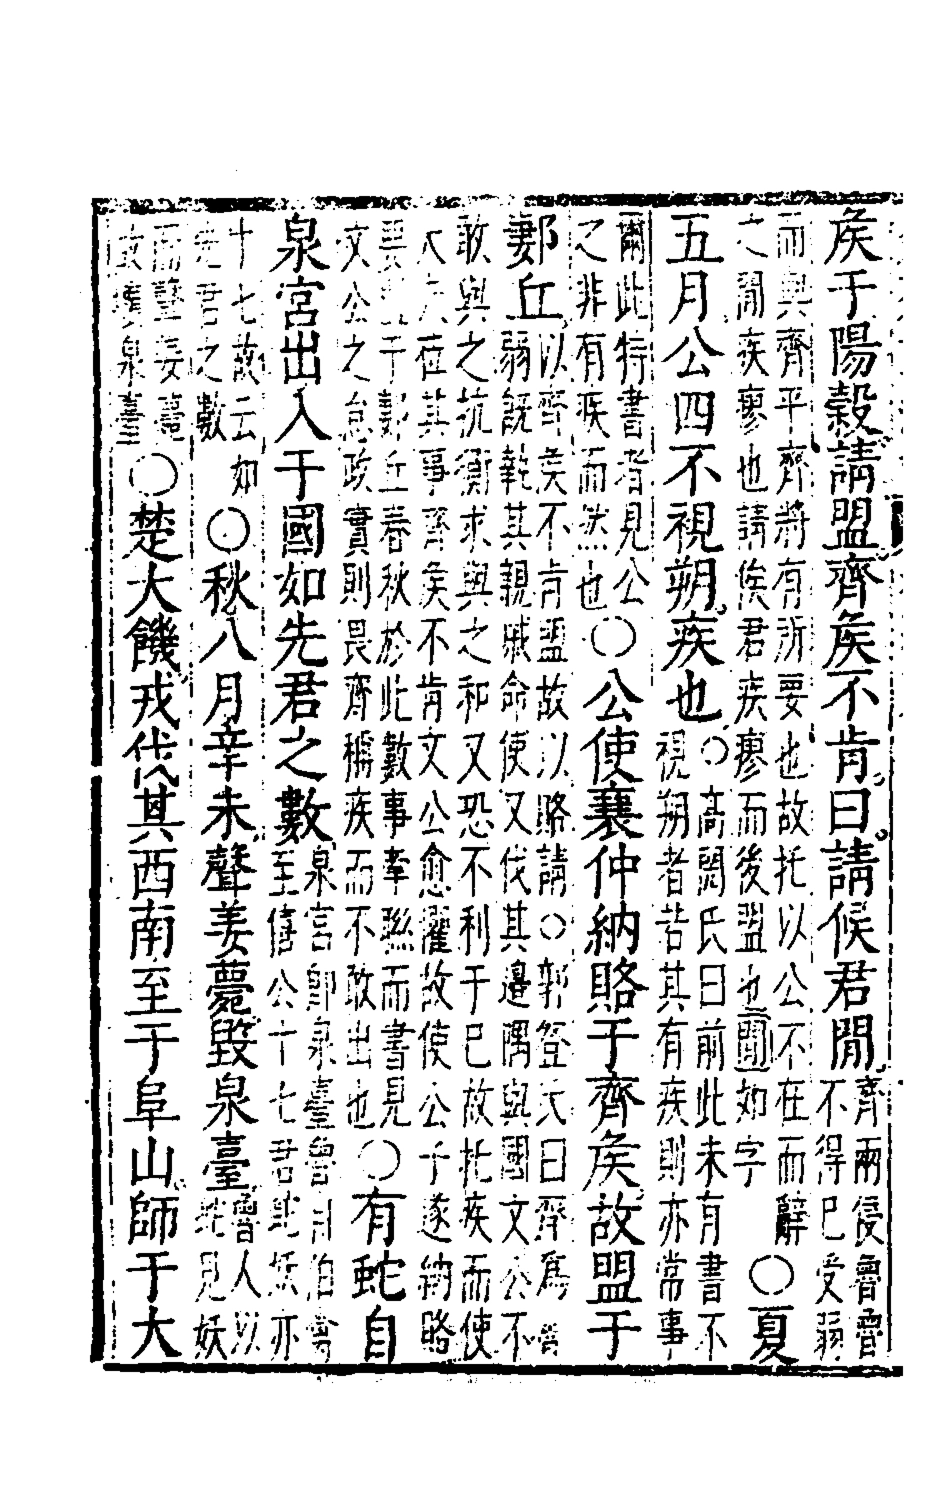 侯于陽穀請盟齊侯不肯曰請候君閒齊兩侵魯魯
不得已受弱
而與齊平齊將有所要也故托以公不在而辭
之閒疾廖也請俟君疾瘳而後盟也閒如字○夏
五月公四不視朔疾也○高閌氏曰前此未有書不
視朔者若其有疾則亦常事
爾此特書者見公
之非有疾而然也○公使襄仲納賂于齊侯故盟于
郪丘以齊侯不肯盟故以賂請○郭登氏曰齊爲
弱旣執其親戚命使又伐其邊隅與國文公不
敢與之抗衡求與之和又恐不利于已故托疾而使
大夫莅其事齊侯不肯文公愈懼故使公子遂納賂
要盟于郪丘春秋於此數事牽聯而書見
文公之怠政實則畏齊稱疾而不敢出也○有蛇自
泉宮出入于國如先君之數泉宮卽泉臺魯自伯禽
至僖公十七君蛇妖亦
十七故云如
先君之數○秋八月辛未聲姜薨毀泉臺魯人以
蛇見妖
而聲姜薨
故壞泉臺○楚大饑戎伐其西南至于阜山師于大